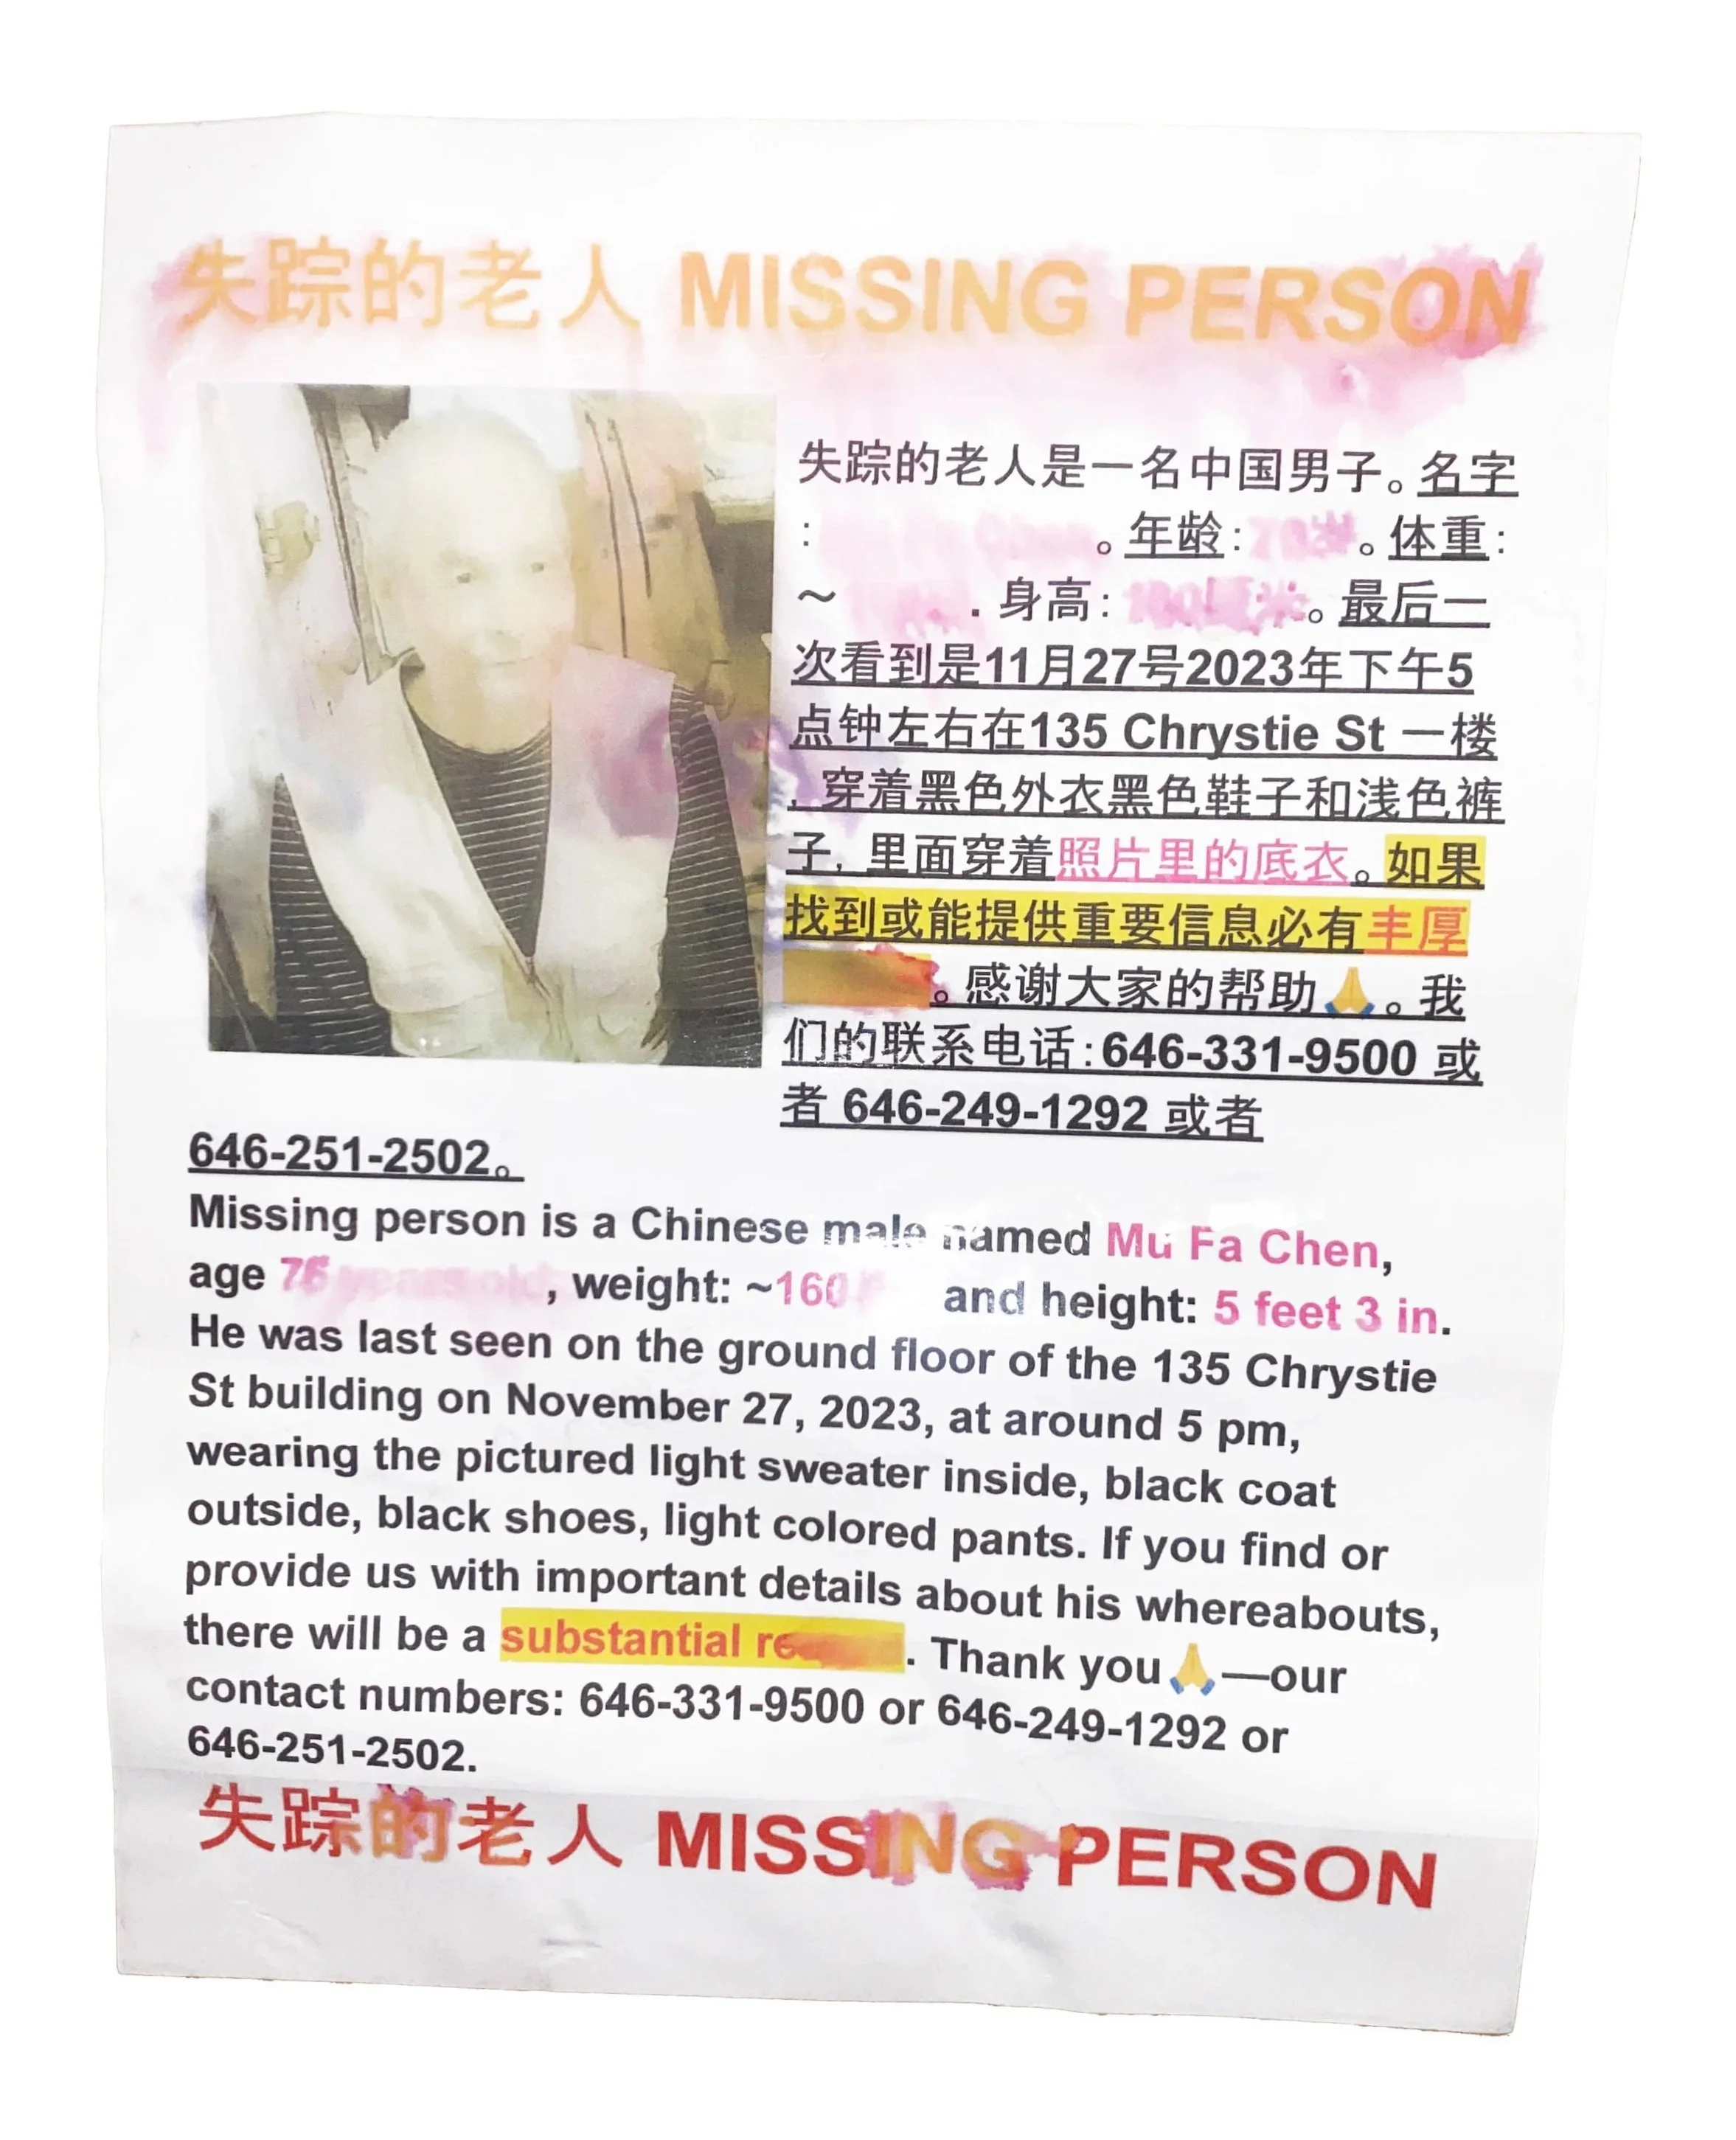 失踪的老人 MISSING PERSON
失踪的老人是一名中国男子。名字
: Fa Chen 。年龄: 。体重:
~ . 身高: 。最后一
次看到是11月27号2023年下午5
点钟左右在135 Chrystie St 一楼
, 穿着黑色外衣黑色鞋子和浅色裤
子, 里面穿着照片里的底衣。如果
找到或能提供重要信息必有丰厚
。感谢大家的帮助🙏。我
们的联系电话:646-331-9500 或
者 646-249-1292 或者
646-251-2502。
Missing person is a Chinese male named Mu Fa Chen,
age years old, weight: ~160 and height: 5 feet 3 in.
He was last seen on the ground floor of the 135 Chrystie
St building on November 27, 2023, at around 5 pm,
wearing the pictured light sweater inside, black coat
outside, black shoes, light colored pants. If you find or
provide us with important details about his whereabouts,
there will be a substantial . Thank you🙏—our
contact numbers: 646-331-9500 or 646-249-1292 or
646-251-2502.
失踪的老人 MISSING PERSON